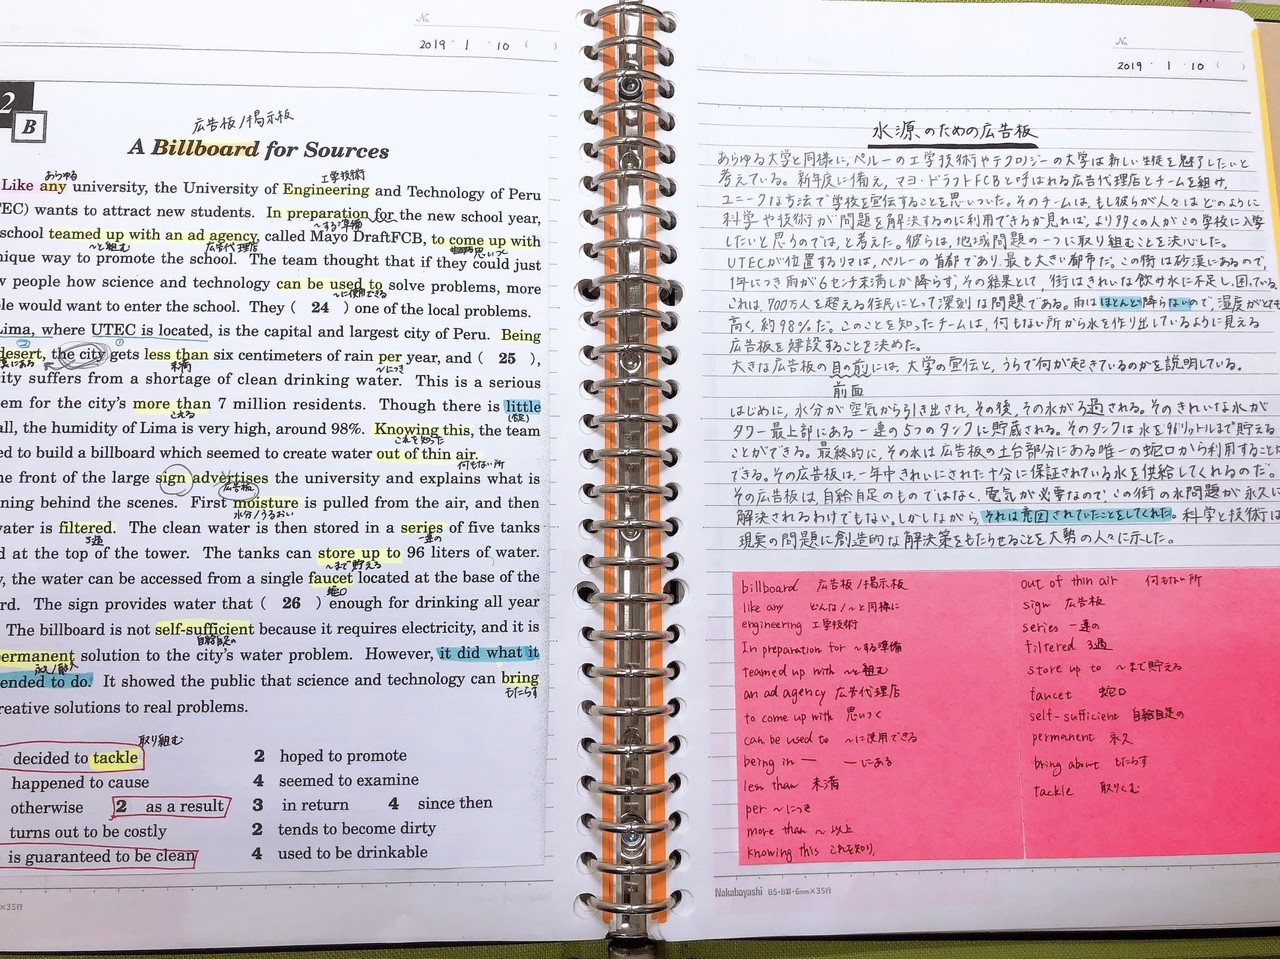 No.
2019 · 1 · 10 ( )
2
B
広告板/掲示板
A Billboard for Sources
あらゆる
工学技術
Like any university, the University of Engineering and Technology of Peru
EC) wants to attract new students. In preparation for the new school year,
〜する準備
school teamed up with an ad agency, called Mayo DraftFCB, to come up with
〜と組む 広告代理店 思いつく
nique way to promote the school. The team thought that if they could just
w people how science and technology can be used to solve problems, more
〜に使用できる
ple would want to enter the school. They ( 24 ) one of the local problems.
Lima, where UTEC is located, is the capital and largest city of Peru. Being
② ①
desert, the city gets less than six centimeters of rain per year, and ( 25 ),
にある 未満 〜につき
ity suffers from a shortage of clean drinking water. This is a serious
em for the city's more than 7 million residents. Though there is little
こえる (否定)
all, the humidity of Lima is very high, around 98%. Knowing this, the team
これを知った
ed to build a billboard which seemed to create water out of thin air.
何もない所
he front of the large sign advertises the university and explains what is
広告板
ning behind the scenes. First moisture is pulled from the air, and then
水分/うるおい
water is filtered. The clean water is then stored in a series of five tanks
ろ過 一連の
d at the top of the tower. The tanks can store up to 96 liters of water.
〜まで貯える
y, the water can be accessed from a single faucet located at the base of the
蛇口
rd. The sign provides water that ( 26 ) enough for drinking all year
The billboard is not self-sufficient because it requires electricity, and it is
自給自足の
ermanent solution to the city's water problem. However, it did what it
永久/耐久
ended to do. It showed the public that science and technology can bring
もたらす
reative solutions to real problems.
取り組む
decided to tackle 2 hoped to promote
happened to cause 4 seemed to examine
otherwise 2 as a result 3 in return 4 since then
turns out to be costly 2 tends to become dirty
is guaranteed to be clean 4 used to be drinkable
×35行
No.
2019 · 1 · 10 ( )
水源のための広告板
あらゆる大学と同様に、ペルーの工学技術やテクノロジーの大学は新しい生徒を魅了したいと
考えている。新年度に備え、マヨ・ドラフトFCBと呼ばれる広告代理店とチームを組み、
ユニークな方法で学校を宣伝することを思いついた。そのチームは、もし彼らが人々はどのように
科学や技術が問題を解決するのに利用できるか見れば、より多くの人がこの学校に入学
したいと思うのでは、と考えた。彼らは、地域問題の一つに取り組むことを決心した。
UTECが位置するリマは、ペルーの首都であり、最も大きい都市だ。この街は砂漠にあるので、
1年につき雨が6センチ未満しか降らず、その結果として、街はきれいな飲み水に不足し、困っている。
これは、700万人を超える住民にとって深刻な問題である。雨はほとんど降らないので、湿度がとても
高く、約98%だ。このことを知ったチームは、何もない所から水を作り出しているように見える
広告板を建設することを決めた。
大きな広告板の目の前には、大学の宣伝と、うらで何が起きているのかを説明している。
前面
はじめに、水分が空気から引き出され、その後、その水がろ過される。そのきれいな水が
タワー最上部にある一連の5つのタンクに貯蔵される。そのタンクは水を96リットルまで貯える
ことができる。最終的に、その水は広告板の土台部分にある唯一の蛇口から利用することが
できる。その広告板は一年中きれいにされた十分に保証されている水を供給してくれるのだ。
その広告板は、自給自足のものではなく、電気が必要なので、この街の水問題が永久に
解決されるわけでもない。しかしながら、それは意図されていたことをしてくれた。科学と技術は
現実の問題に創造的な解決策をもたらせることを大勢の人々に示した。
billboard 広告板/掲示板
like any どんな/〜と同様に
engineering 工学技術
In preparation for 〜する準備
teamed up with 〜と組む
an ad agency 広告代理店
to come up with 思いつく
can be used to 〜に使用できる
being in ― ―にある
less than 未満
per 〜につき
more than 〜以上
knowing this これを知り、
out of thin air 何もない所
sign 広告板
series 一連の
filtered ろ過
store up to 〜まで貯える
faucet 蛇口
self-sufficient 自給自足の
permanent 永久
bring about もたらす
tackle 取りくむ
Nakabayashi B5・B罫・6mm×35行